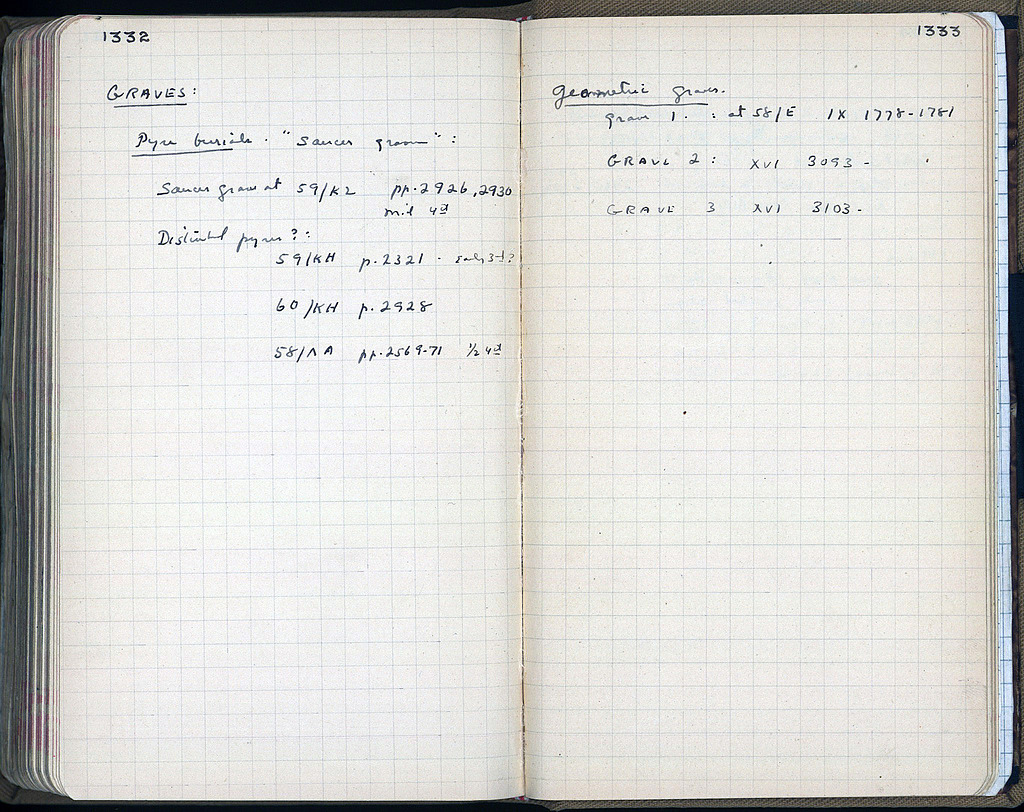 1332
GRAVES:
Pyre burials. "Saucer graves":
Saucer grave at 59/KZ pp. 2926, 2930
mid 4th
Disturbed pyres?:
59/KH p. 2321 - Early 3rd?
60/KH p. 2928
58/ΛA pp. 2569-71 1/2 4th
1333
Geometric graves.
grave 1. : at 58/E IX 1778-1781
GRAVE 2: XVI 3093 -
GRAVE 3 XVI 3103 -